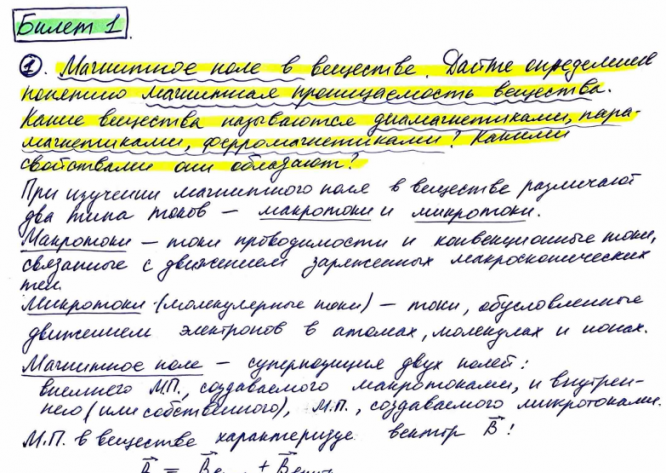 Билет 1.
①. Магнитное поле в веществе. Дайте определение
понятию магнитная проницаемость вещества.
Какие вещества называются диамагнетиками, пара-
магнетиками, ферромагнетиками? Какими
свойствами они обладают?
При изучении магнитного поля в веществе различают
два типа токов – макротоки и микротоки.
Макротоки – токи проводимости и конвекционные токи,
связанные с движением заряженных макроскопических
тел.
Микротоки (молекулярные токи) – токи, обусловленные
движением электронов в атомах, молекулах и ионах.
Магнитное поле – суперпозиция двух полей:
внешнего М.П., создаваемого макротоками, и внутрен-
него (или собственного), М.П., создаваемого микротоками.
М.П. в веществе характеризуе вектор B⃗!
B⃗ = B⃗ + B⃗